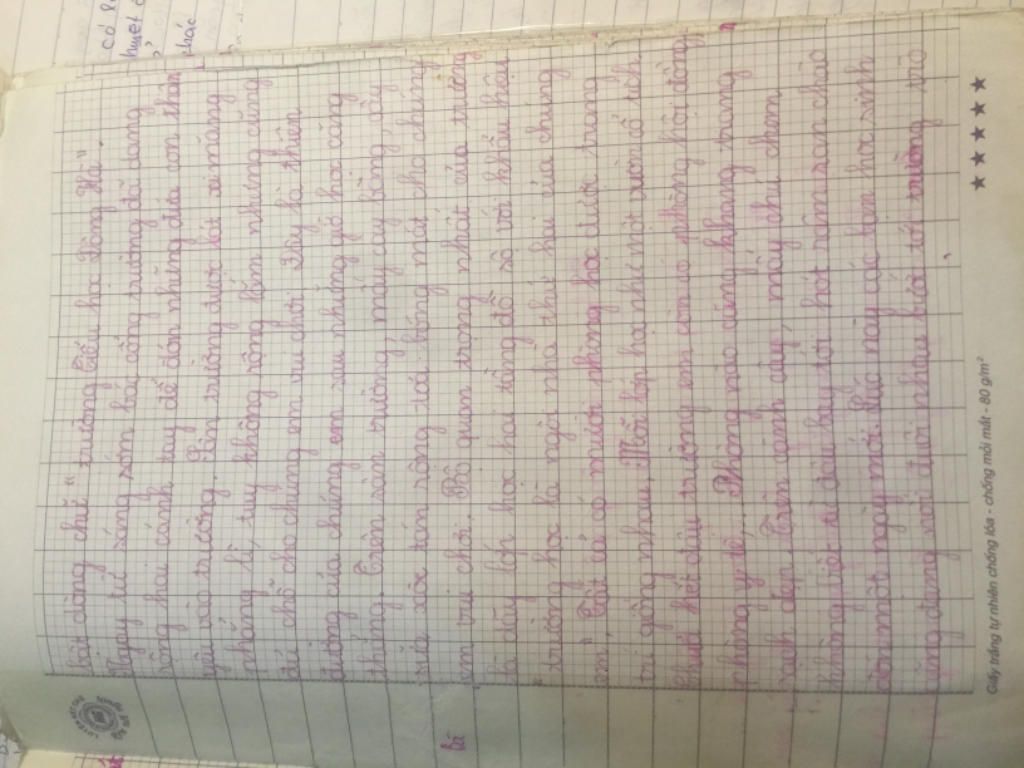 bật dòng chữ "trường Tiểu học Đông Hà".
Ngay từ sáng sớm bác cổng trường đã dang
rộng hai cánh tay để đón những đứa con thân
yêu vào trường. Sân trường được lót xi măng
nhẵng lì, tuy không rộng lắm nhưng cũng
đủ chỗ cho chúng em vui chơi. Đây là thiên
đường của chúng em sau những giờ học căng
thẳng. Trên sân trường, mấy cây bàng, cây
xòe tán rộng toả bóng mát cho chúng
em vui chơi. Bộ quan trọng nhất của trường
là dãy lớp học hai tầng đồ sộ với khẩu hiệu
"trường học là ngôi nhà thứ hai của chúng
em". Tất cả có mười phòng học được trang
trí giống nhau. Mỗi lớp học như một vườn cổ tích
Chưa hết đâu trường em còn có phòng hội đồng,
phòng y tế,... Phòng nào cũng khang trang
sạch đẹp. Trên cành cây, mấy chú chim
không biết từ đâu bay tới hót râm ran chào
đón một ngày mới. Lúc này các bạn học sinh
cũng đang nối đuôi nhau bước tới trường
là
có
huyết
khác
Giấy trắng tự nhiên chống lóa - chống mỏi mắt - 80 g/m²
★ ★ ★ ★ ★